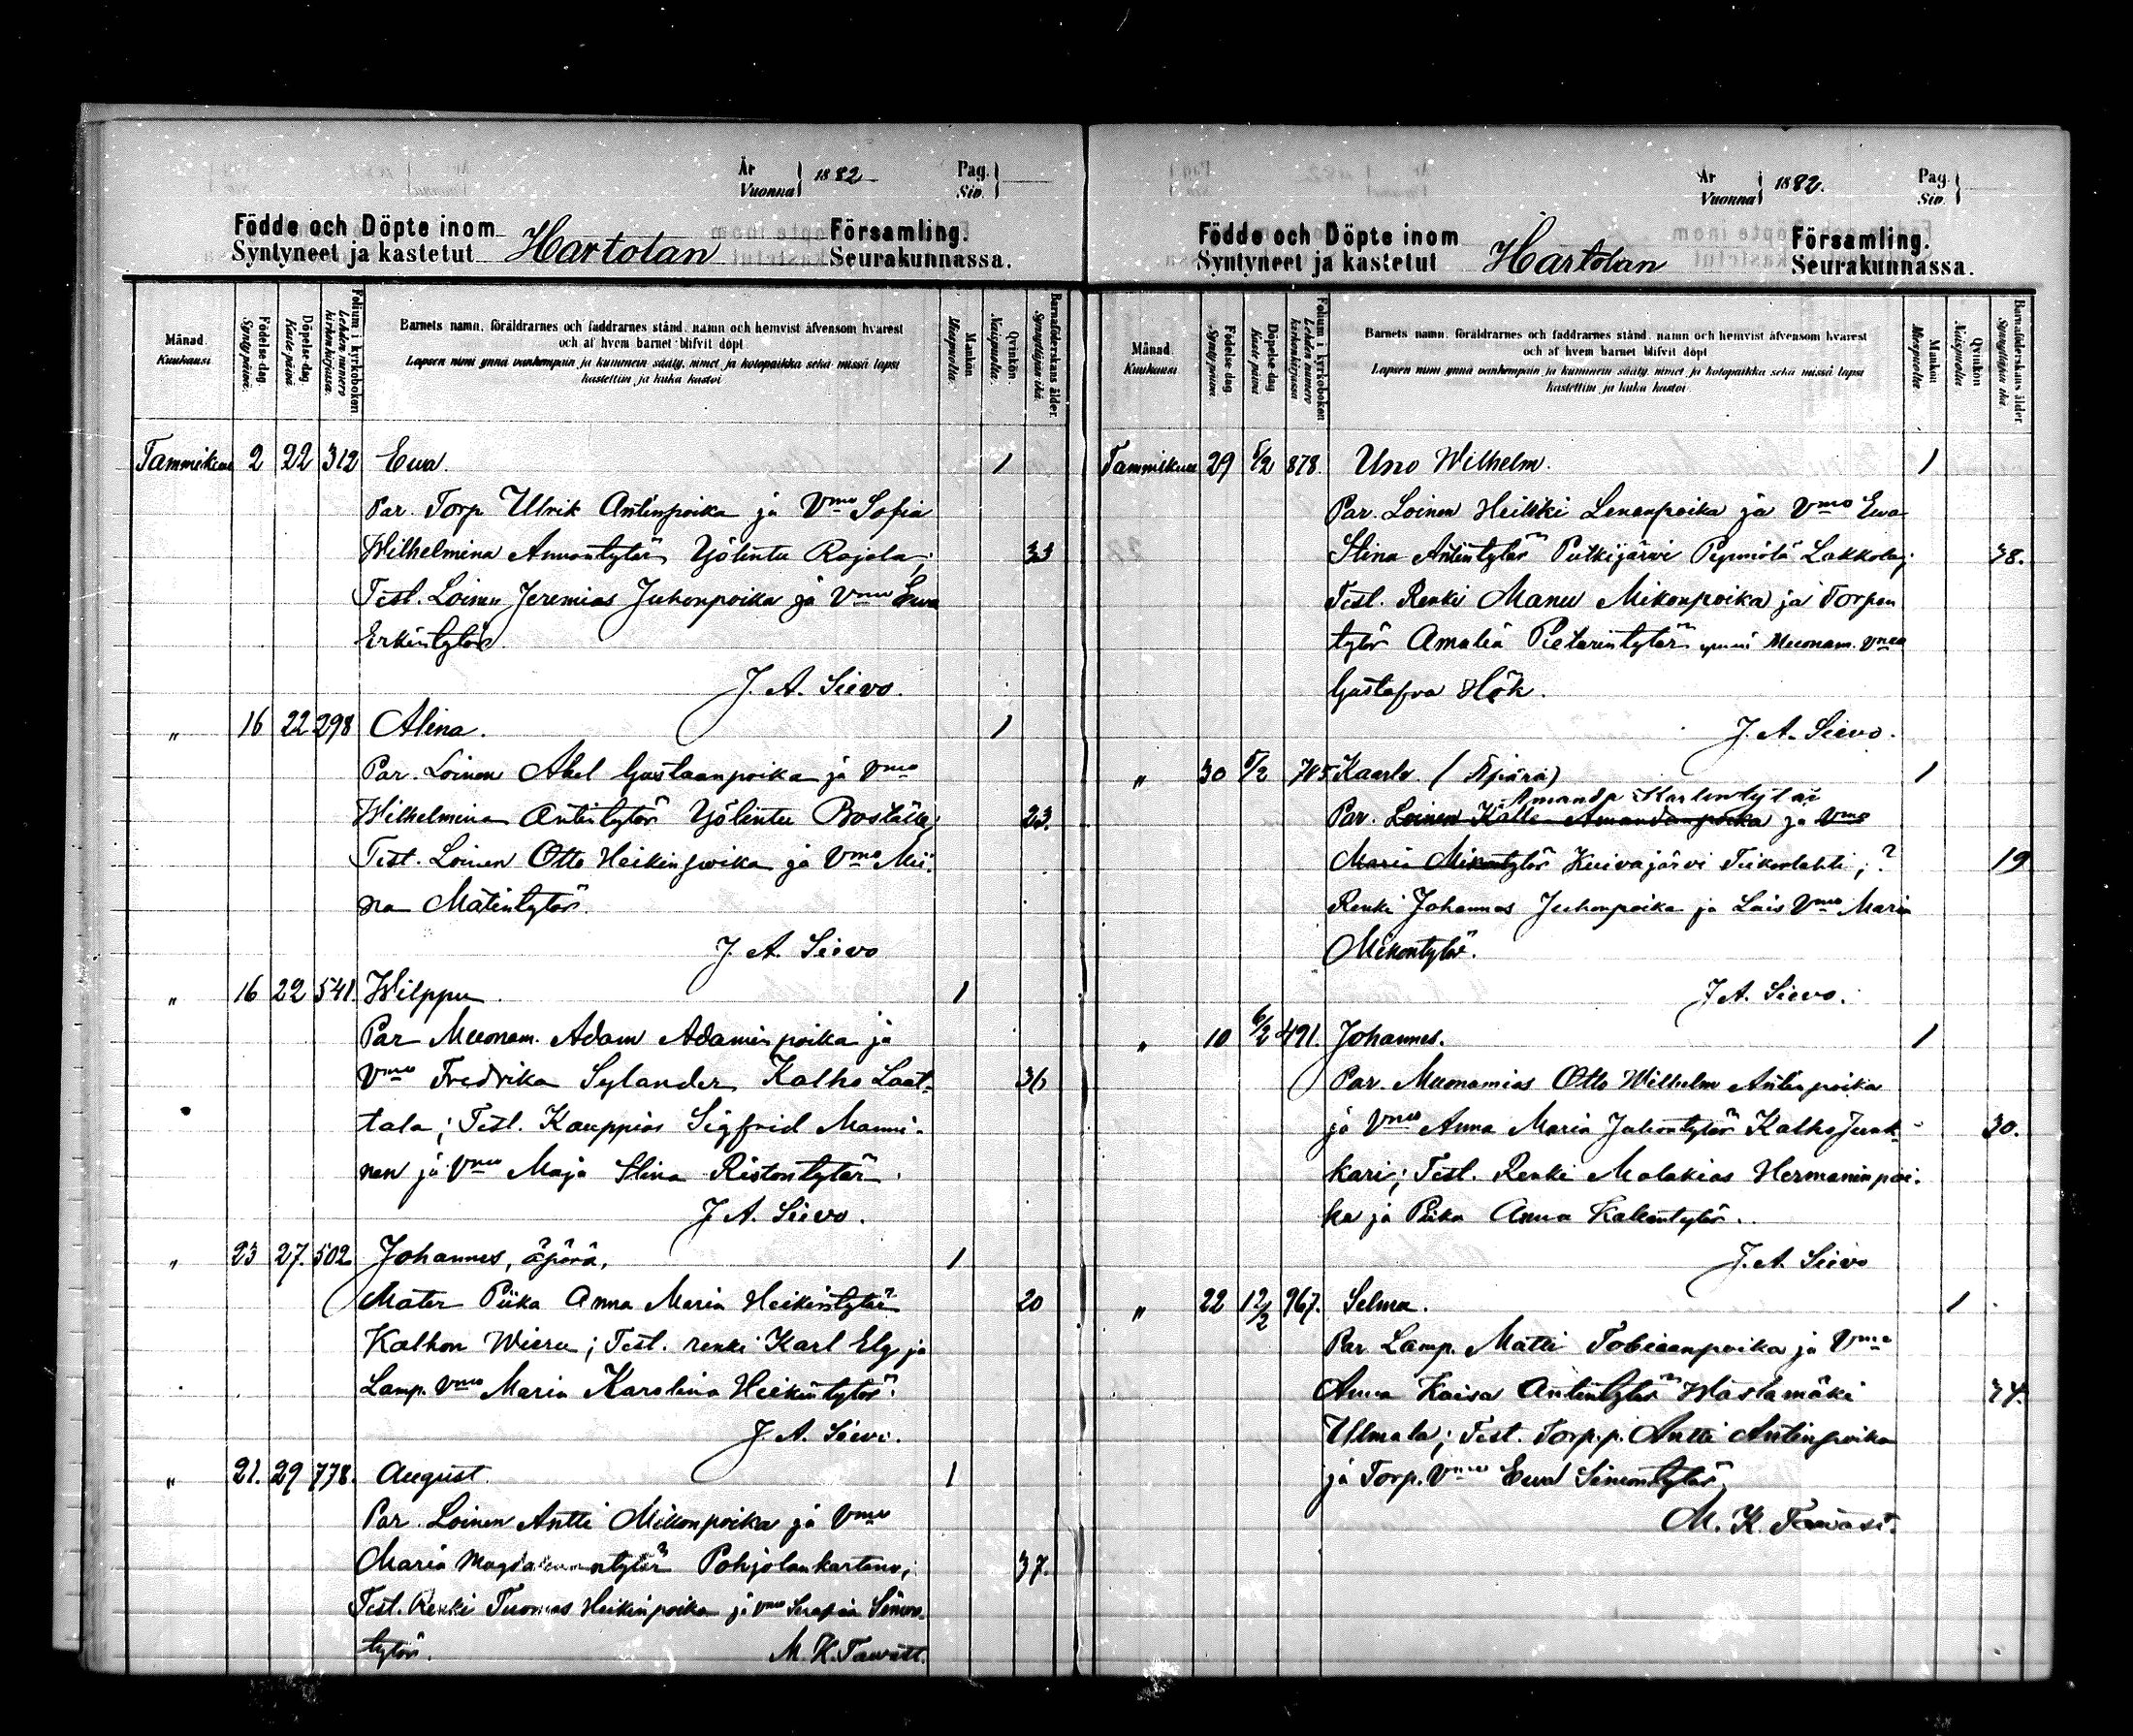 År
Vuonna } 1882
Pag.
Siv. }
Födde och Döpte inom
Syntyneet ja kastetut Hartolan Församling.
Seurakunnassa.
Månad.
Kuukausi
Födelse-dag.
Syntypäivä.
Döpelse-dag.
Kastepäivä.
Folium i kyrkoboken
Lehden numero kirkonkirjassa.
Barnets namn, föräldrarnes och faddrarnes stånd, namn och hemvist äfvensom hvarest
och af hvem barnet blifvit döpt
Lapsen nimi ynnä vanhempain ja kummein sääty, nimet ja kotopaikka sekä missä lapsi
kastettiin ja kuka kastoi
Mankön.
Miespuolia.
Qvinkön.
Naispuolia.
Barnaföderskans ålder.
Synnyttäjän ikä.
Tammikuu 2 22 312 Ewa 1
Par. Torp Ulrik Antinpoika ja Vmo Sofia
Wilhelmina Yölintu Rajala; 33
Test. Loinen Jeremias Juhonpoika ja Vmo Ewa
Erkintytär.
J. A. Sievo.
" 16 22 298 Alina. 1
Par. Loinen Abel Gustaanpoika ja Vmo
Wilhelmina Antintytär Yölintu 23.
Test. Loinen Otto Heikinpoika ja Vmo Mii-
na Matintytär.
J. A. Sievo
" 16 22 541. Wilppu 1
Par Muonam. Adam Adaminpoika ja
Vmo Fredrika Sylander Kalho Laat- 36
tala; Test. Kauppias Sigfrid Manni-
nen ja Vmo Maja Stina Ristontytär
J. A. Sievo.
" 23 27. 502 Johannes, äpärä, 1
Mater Piika Anna Maria Heikintytär 20
Kalhon Wieru; Test. renki Karl Elg ja
Lamp. Vmo Maria Karolina Heikintytär.
J. A. Sievo.
" 21. 29 778. August. 1
Par. Loinen Antti Mikonpoika ja Vmo
Maria Pohjolankartano; 37.
Test. Renki Tuomas Heikinpoika ja vmo Serafia Simon-
tytär. M. K. Tawast.
År
Vuonna } 1882.
Pag
Siv. }
Födde och Döpte inom
Syntyneet ja kastetut Hartolan Församling.
Seurakunnassa.
Månad.
Kuukausi
Födelse-dag
Syntypäivä.
Döpelse-dag
Kastepäivä
Folium i kyrkoboken
Lehden numero kirkonkirjassa
Barnets namn, föräldrarnes och faddrarnes stånd, namn och hemvist äfvensom hvarest
och af hvem barnet blifvit döpt
Lapsen nimi ynnä vanhempain ja kummein sääty, nimet ja kotopaikka sekä missä lapsi
kastettiin ja kuka kastoi
Mankön
Miespuolia.
Qvinkön
Naispuolia.
Barnaföderskans ålder
Synnyttäjän ikä.
Tammikuu 29 5/2 878. Uno Wilhelm. 1
Par. Loinen Heikki Lenanpoika ja Vmo Ewa
Stina Antintytär Putkijärvi Lakkola; 38.
Test. Renki Manu Mikonpoika ja Torpan
tytär Amalia Pietarintytär Muonam. Vmo
Gustafva Hök.
J. A. Sievo.
" 30 5/2 745 Kaarlo (Äpärä) 1
Amanda Karlentytär
Par. Loinen Kalle Amandanpoika ja Vmo
Maria Mikontytär Kuivajärvi Tiikonlahti; ? 19
Renki Johannes Juhonpoika ja Lois Vmo Maria
Mikontytär.
J. A. Sievo.
" 10 6/2 491. Johannes. 1
Par. Muonamies Otto Wilhelm Antinpoika
ja Vmo Anna Maria Juhontytär Kalho Junk- 30.
kari; Test. Renki Malakias Hermaninpoi-
ka ja Piika Anna
J. A. Sievo
" 22 12/2 967. Selma. 1
Par. Lamp. Matti Tobiaanpoika ja Vmo
Anna Kaisa Antintytär Wastamäki 34.
Ulmala; Test. Torp.p. Antti Antinpoika
ja Torp. Vmo Ewa Simontytär
M. K. Tawast.